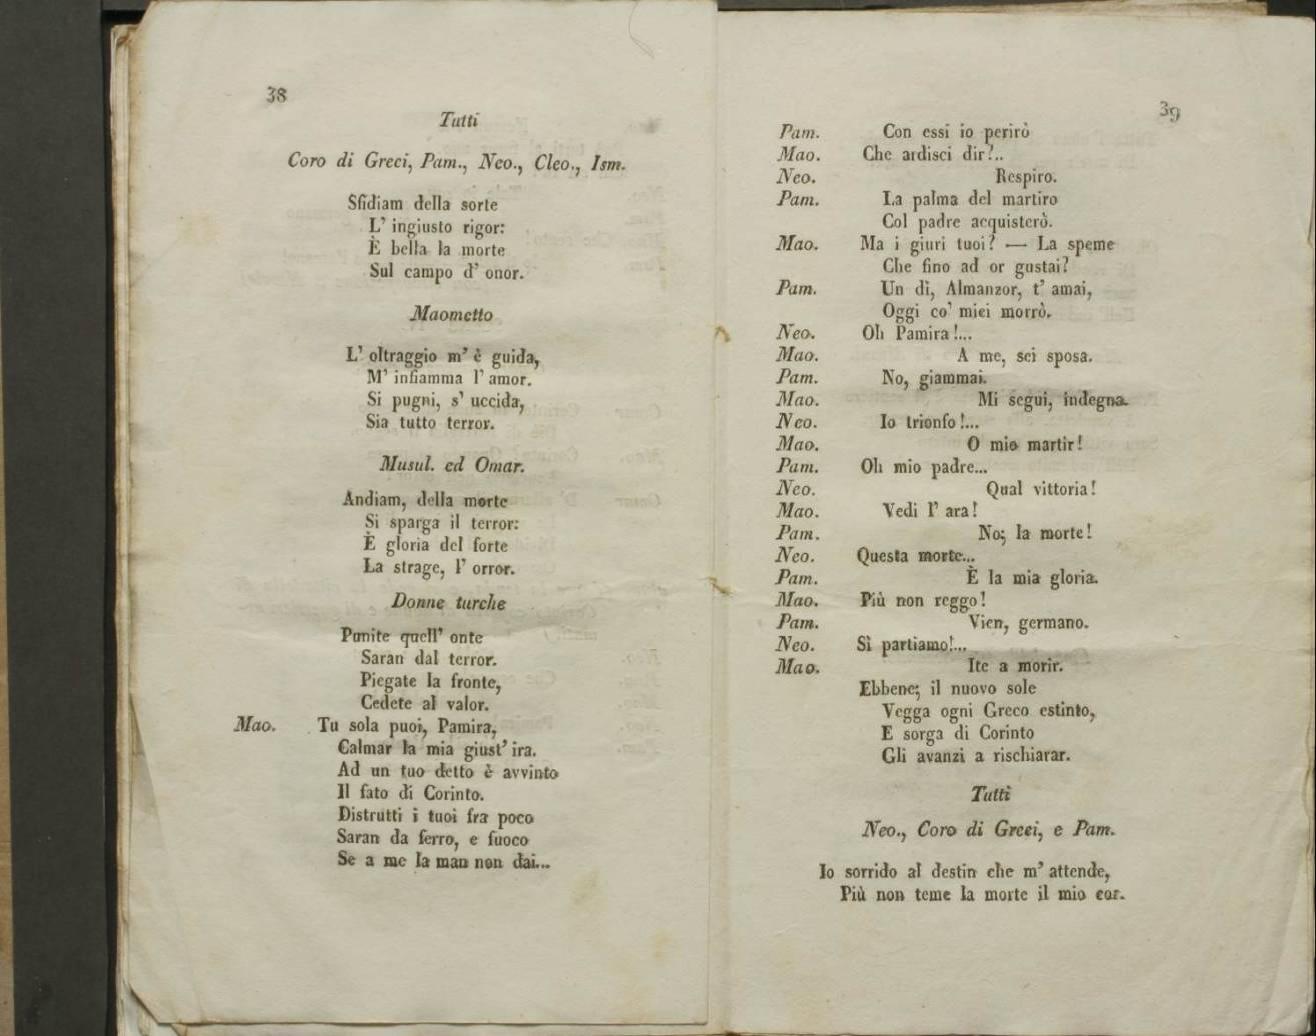 38
Tutti
Coro di Greci, Pam., Neo., Cleo., Ism.
Sfidiam della sorte
L' ingiusto rigor:
È bella la morte
Sul campo d' onor.
Maometto
L' oltraggio m' è guida,
M' infiamma l' amor.
Si pugni, s' uccida,
Sia tutto terror.
Musul. ed Omar.
Andiam, della morte
Si sparga il terror:
È gloria del forte
La strage, l' orror.
Donne turche
Punite quell' onte
Saran dal terror.
Piegate la fronte,
Cedete al valor.
Mao. Tu sola puoi, Pamira,
Calmar la mia giust' ira.
Ad un tuo detto è avvinto
Il fato di Corinto.
Distrutti i tuoi fra poco
Saran da ferro, e fuoco
Se a me la man non dai...
39
Pam. Con essi io perirò
Mao. Che ardisci dir?..
Neo. Respiro.
Pam. La palma del martiro
Col padre acquisterò.
Mao. Ma i giuri tuoi? — La speme
Che fino ad or gustai?
Pam. Un dì, Almanzor, t' amai,
Oggi co' miei morrò.
Neo. Oh Pamira!...
Mao. A me, sei sposa.
Pam. No, giammai.
Mao. Mi segui, indegna.
Neo. Io trionfo!...
Mao. O mio martir!
Pam. Oh mio padre...
Neo. Qual vittoria!
Mao. Vedi l' ara!
Pam. No; la morte!
Neo. Questa morte...
Pam. È la mia gloria.
Mao. Più non reggo!
Pam. Vien, germano.
Neo. Sì partiamo!...
Mao. Ite a morir.
Ebbene; il nuovo sole
Vegga ogni Greco estinto,
E sorga di Corinto
Gli avanzi a rischiarar.
Tutti
Neo., Coro di Greci, e Pam.
Io sorrido al destin che m' attende,
Più non teme la morte il mio cor.